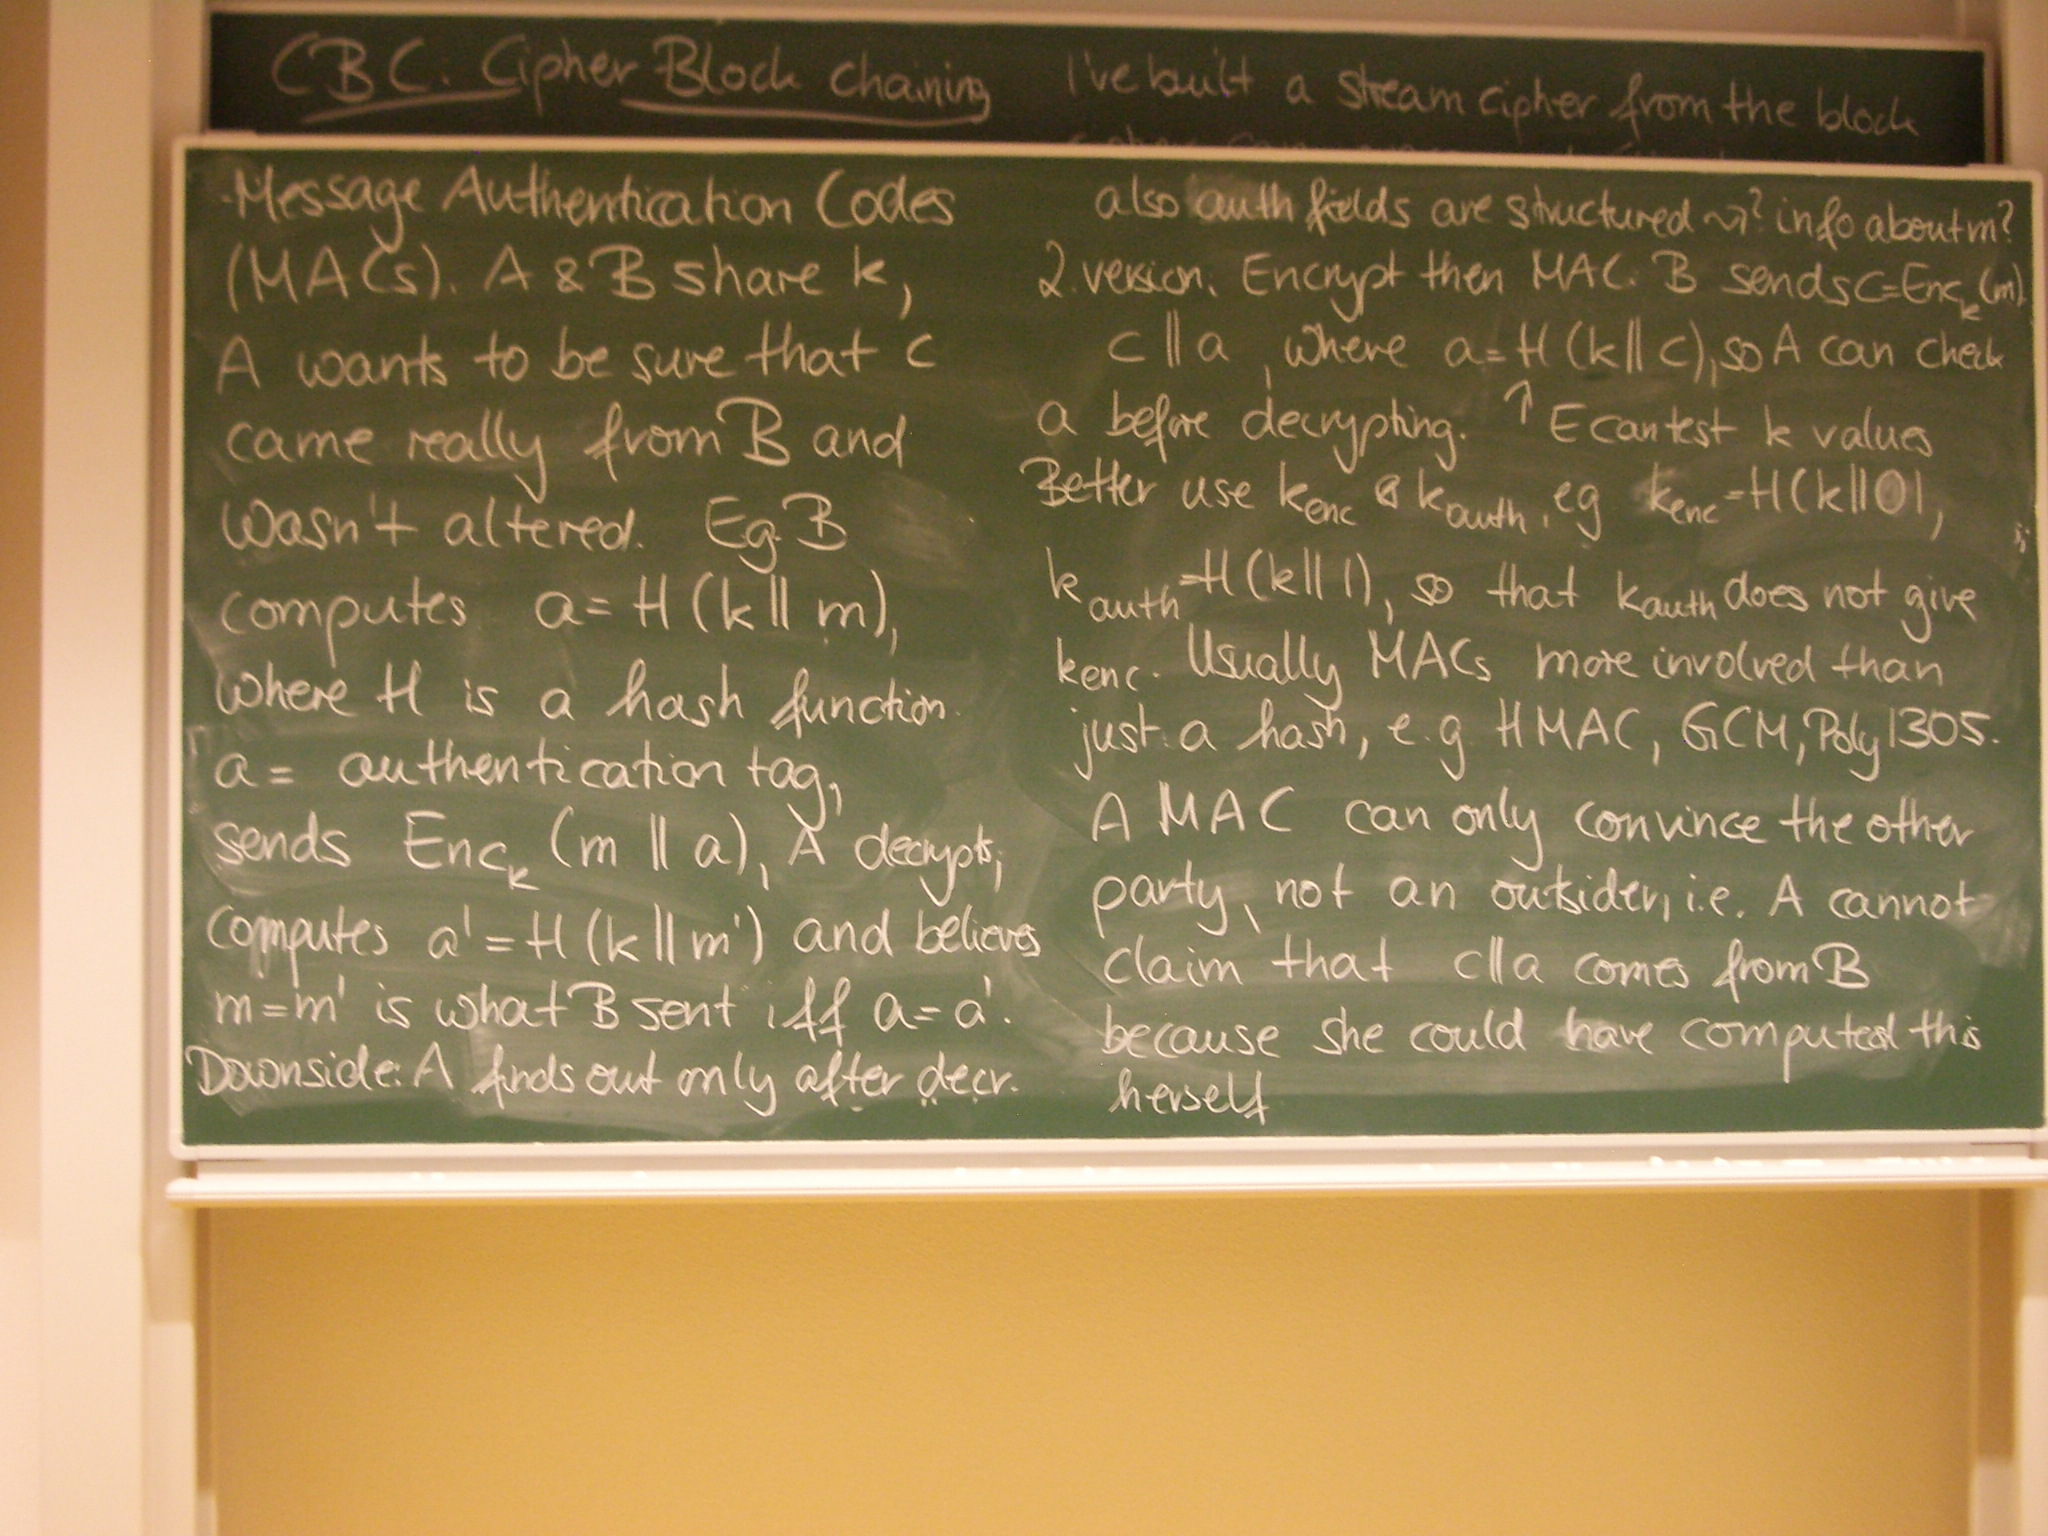 CBC. Cipher Block Chaining
I've built a stream cipher from the block
Message Authentication Codes
(MACs). A & B share k,
A wants to be sure that c
came really from B and
wasn't altered. Eg. B
computes a = H (k || m),
where H is a hash function.
a = authentication tag,
sends Enc_k (m || a), A decrypts,
computes a' = H (k || m') and believes
m = m' is what B sent iff a = a'.
Downside: A finds out only after decr.
also auth fields are structured ⇝? info about m?
2. version. Encrypt then MAC. B sends c=Enc_k(m)
c || a, where a = H (k || c), so A can check
a before decrypting. ↑ E can test k values
Better use k_enc & k_auth, eg k_enc = H(k||0),
k_auth = H(k||1), so that k_auth does not give
k_enc. Usually MACs more involved than
just a hash, e.g. HMAC, GCM, Poly1305.
A MAC can only convince the other
party, not an outsider, i.e. A cannot
claim that c||a comes from B
because she could have computed this
herself